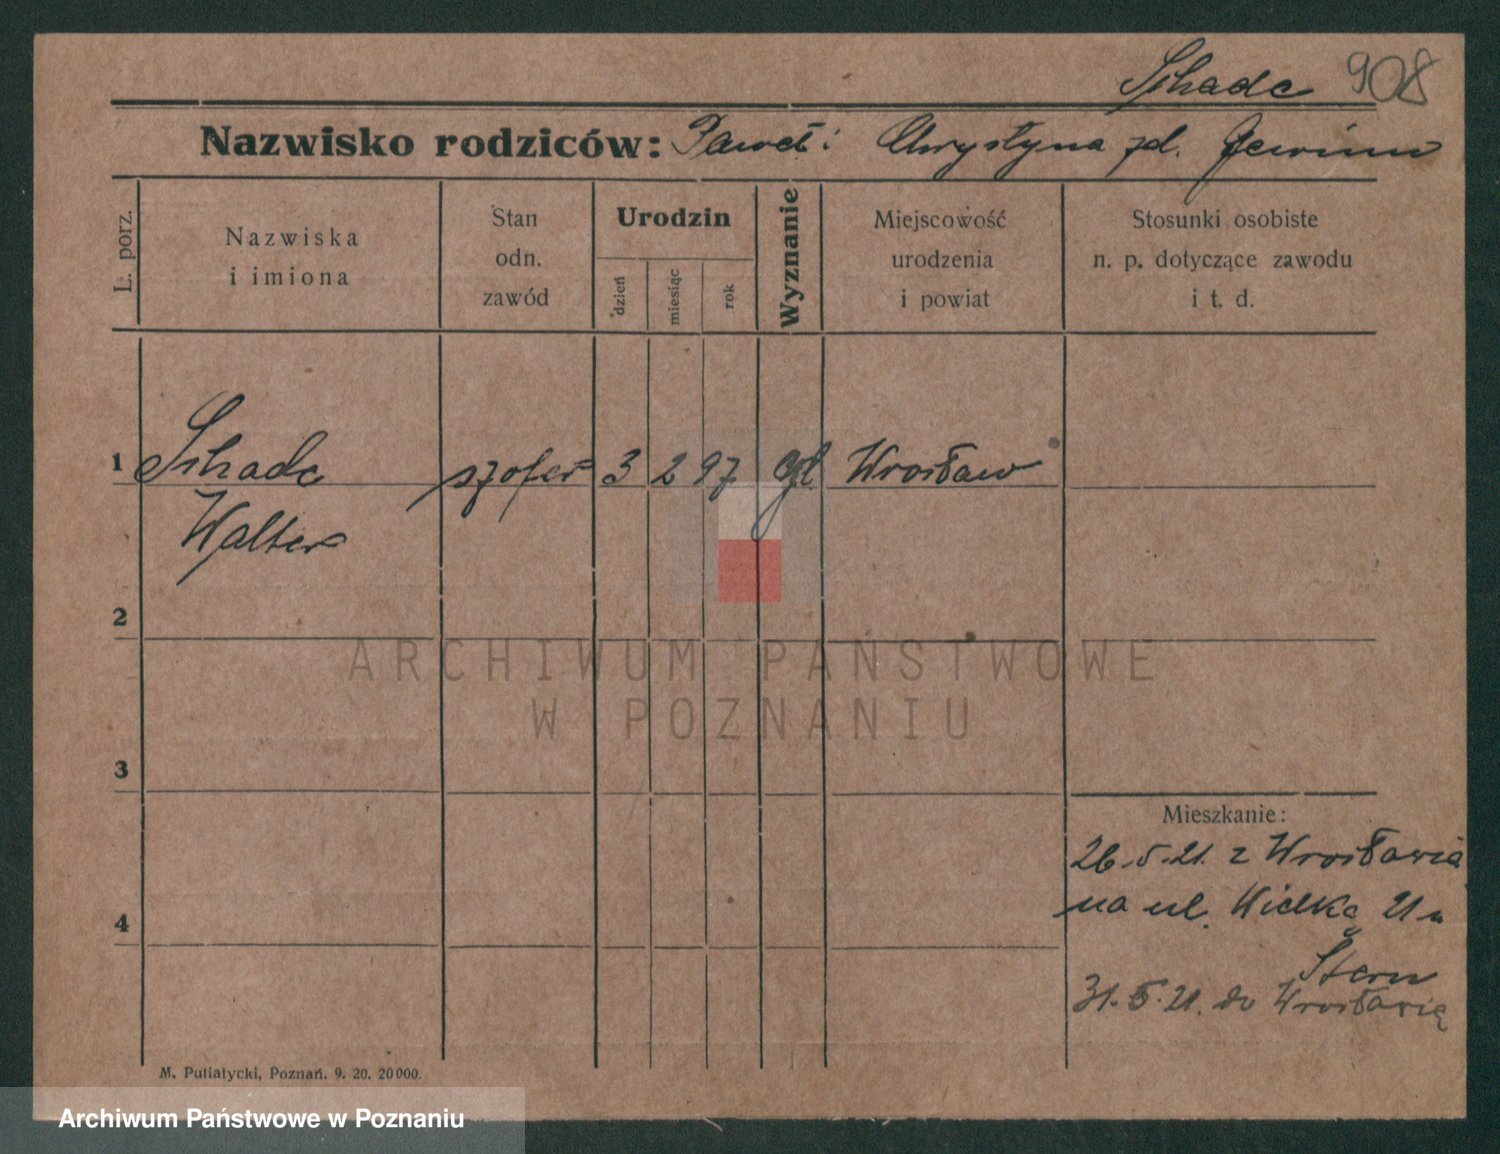 Schade 908
Nazwisko rodziców: Paweł i Chrystyna zd.
L. porz.
Nazwiska
i imiona
Stan
odn.
zawód
Urodzin
dzień
miesiąc
rok
Wyznanie
Miejscowość
urodzenia
i powiat
Stosunki osobiste
n. p. dotyczące zawodu
i t. d.
1 Schade szofer 3 2 97 Wrocław
Walter
2
3
4
Mieszkanie:
26.5.21. z Wrocławia
na ul. Wielką 21 u
Stern
31.5.21. do Wrocławia
M. Putiatycki, Poznań. 9. 20. 20000.
ARCHIWUM PAŃSTWOWE
W POZNANIU
Archiwum Państwowe w Poznaniu